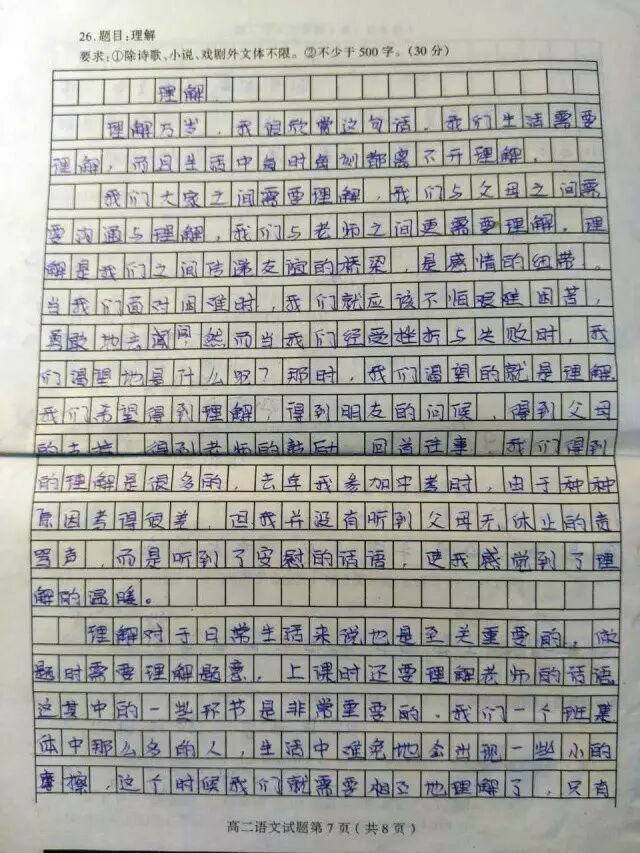 26.题目:理解
要求:①除诗歌、小说、戏剧外文体不限。②不少于500字。(30分)
理解
理解万岁,我很欣赏这句话。我们生活需要
理解,而且生活中每时每刻都离不开理解。
我们大家之间需要理解,我们与父母之间需
要沟通与理解,我们与老师之间更需要理解。理
解是我们之间传递友谊的桥梁,是感情的纽带。
当我们面对困难时,我们就应该不怕艰难困苦,
勇敢地去闯闯,然而当我们经受挫折与失败时,我
们渴望地是什么呢?那时,我们渴望的就是理解.
我们希望得到理解,得到朋友的问候,得到父母
的支持,得到老师的鼓励,回首往事,我们得到
的理解是很多的,去年我参加中考时,由于种种
原因考得很差,但我并没有听到父母无休止的责
骂声,而是听到了安慰的话语,使我感觉到了理
解的温暖。
理解对于日常生活来说也是至关重要的。做
题时需要理解题意,上课时还要理解老师的话语
这其中的一些环节是非常重要的。我们一个班集
体中那么多的人,生活中难免地会出现一些小的
摩擦,这个时候我们就需要相互地理解了,只有
高二语文试题第7页(共8页)